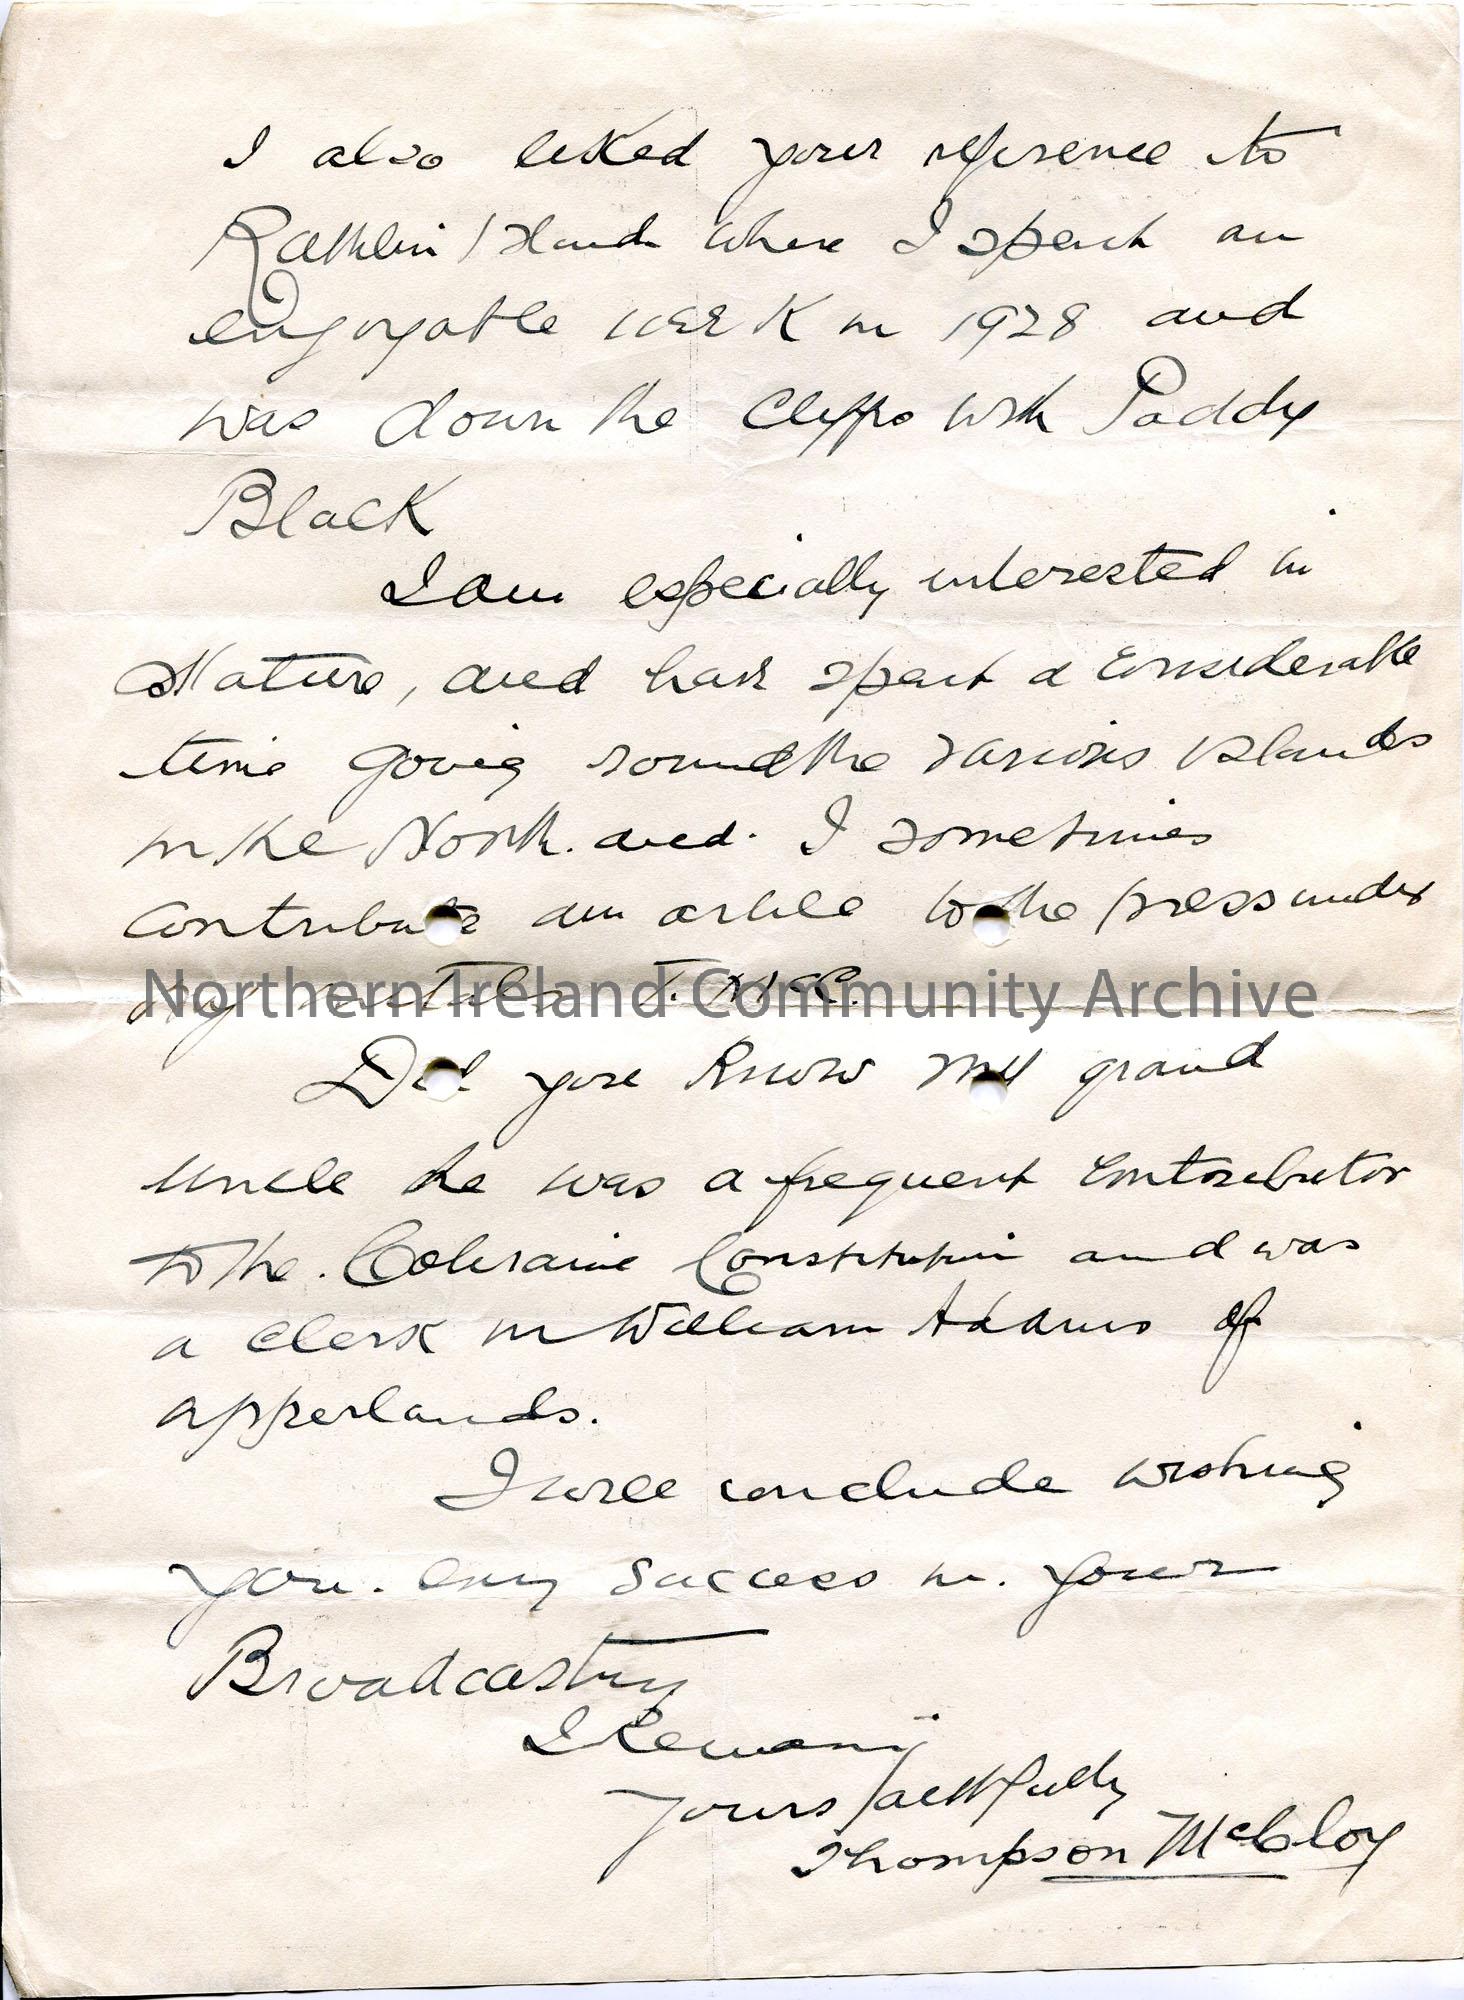 I also liked your reference to
Rathlin Island where I spent an
enjoyable week in 1928 and
was down the cliffs with Paddy
Black
I am especially interested in
Nature, and have spent a considerable
time going round the various islands
in the North. and. I sometimes
contribute an article to the press under
my initials T. McC.
Northern Ireland Community Archive
Did you know my grand
uncle he was a frequent contributor
to the. Coleraine Constitution and was
a clerk in William Adams of
apperlands.
I will conclude wishing
you. every success in. your
Broadcasting
I Remain
yours faithfully
Thompson McCloy